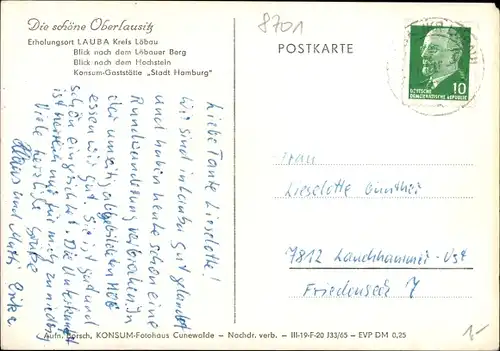 Die schöne Oberlausitz
Erholungsort LAUBA Kreis Löbau
Blick nach dem Löbauer Berg
Blick nach dem Hochstein
Konsum-Gaststätte „Stadt Hamburg"
8701
POSTKARTE
10
DEUTSCHE
DEMOKRATISCHE REPUBLIK
Liebe Tante Lieselotte!
Wir sind in Lauba gut gelandet
und haben heute schon eine
Rundwanderung verbrochen. In
der umseitig abgebildeten HOG
essen wir gut. Sie ist rund
schön eingerichtet. Die Unterkunft
ist herrlich nur für mich zu niedrig
Viele herzliche Grüße
Klaus und Mutti Erika
Frau
Lieselotte Günther
7812 Lauchhammer-Ost
Friedenseck 7
Aufn. Dorsch, KONSUM-Fotohaus Cunewalde - Nachdr. verb. - III-19-F-20 J33/65 - EVP DM 0,25